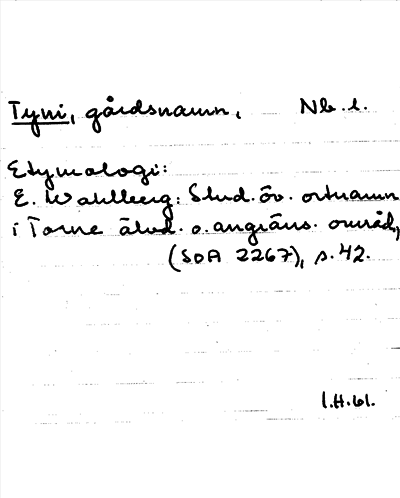 Tyni, gårdsnamn, Nb. l.
Etymologi:
E. Wahlberg: Stud. öv. ortnamn
i Torne älvd. o. angräns. område,
(SOA 2267), s. 42.
I.H. 61.